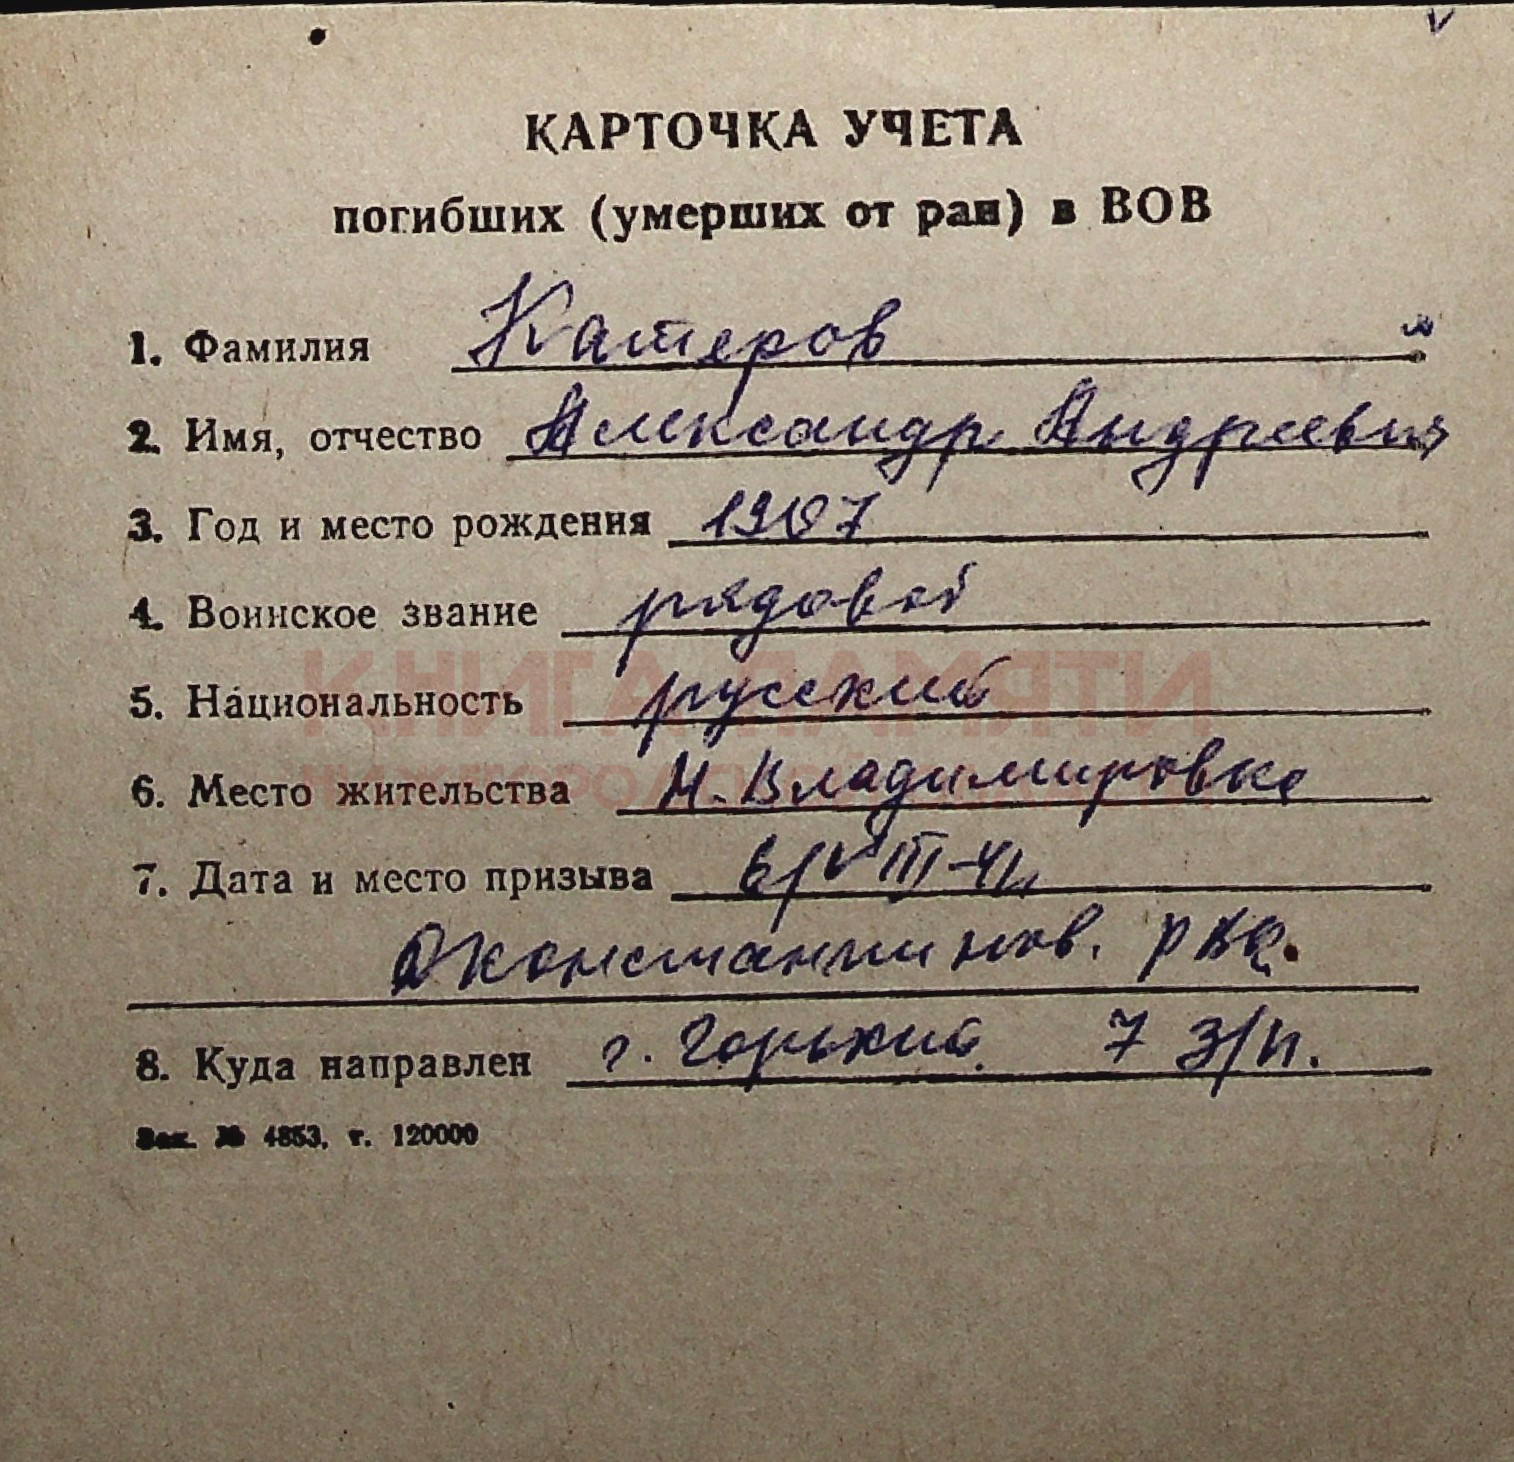 КАРТОЧКА УЧЕТА
погибших (умерших от ран) в ВОВ
1. Фамилия Катеров
2. Имя, отчество Александр Андреевич
3. Год и место рождения 1907
4. Воинское звание рядовой
КНИГА ПАМЯТИ
5. Национальность русский
6. Место жительства Н. Владимировка
7. Дата и место призыва 6/VIII-41
Дконстантинов. РВК.
8. Куда направлен г. Горький 7 З/П.
Зак. № 4853, т. 120000